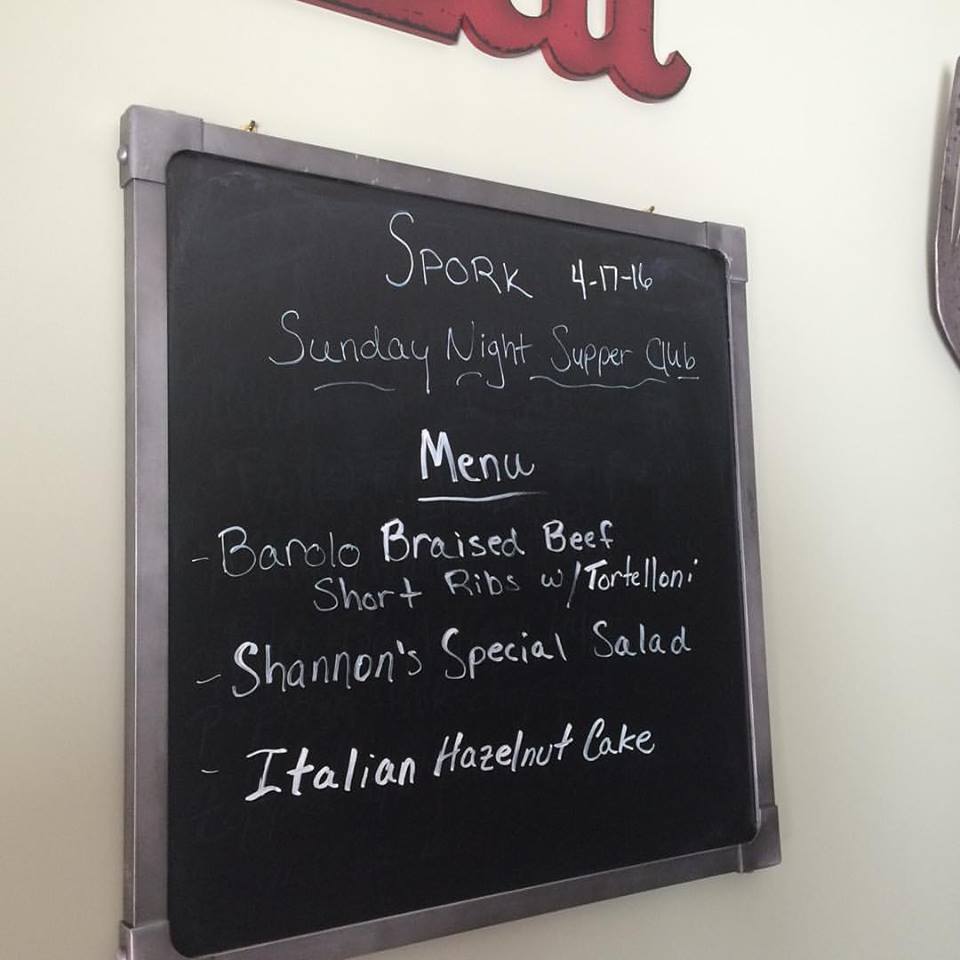 Spork 4-17-16
Sunday Night Supper Club
Menu
- Barolo Braised Beef
Short Ribs w/Tortelloni
- Shannon's Special Salad
- Italian Hazelnut Cake